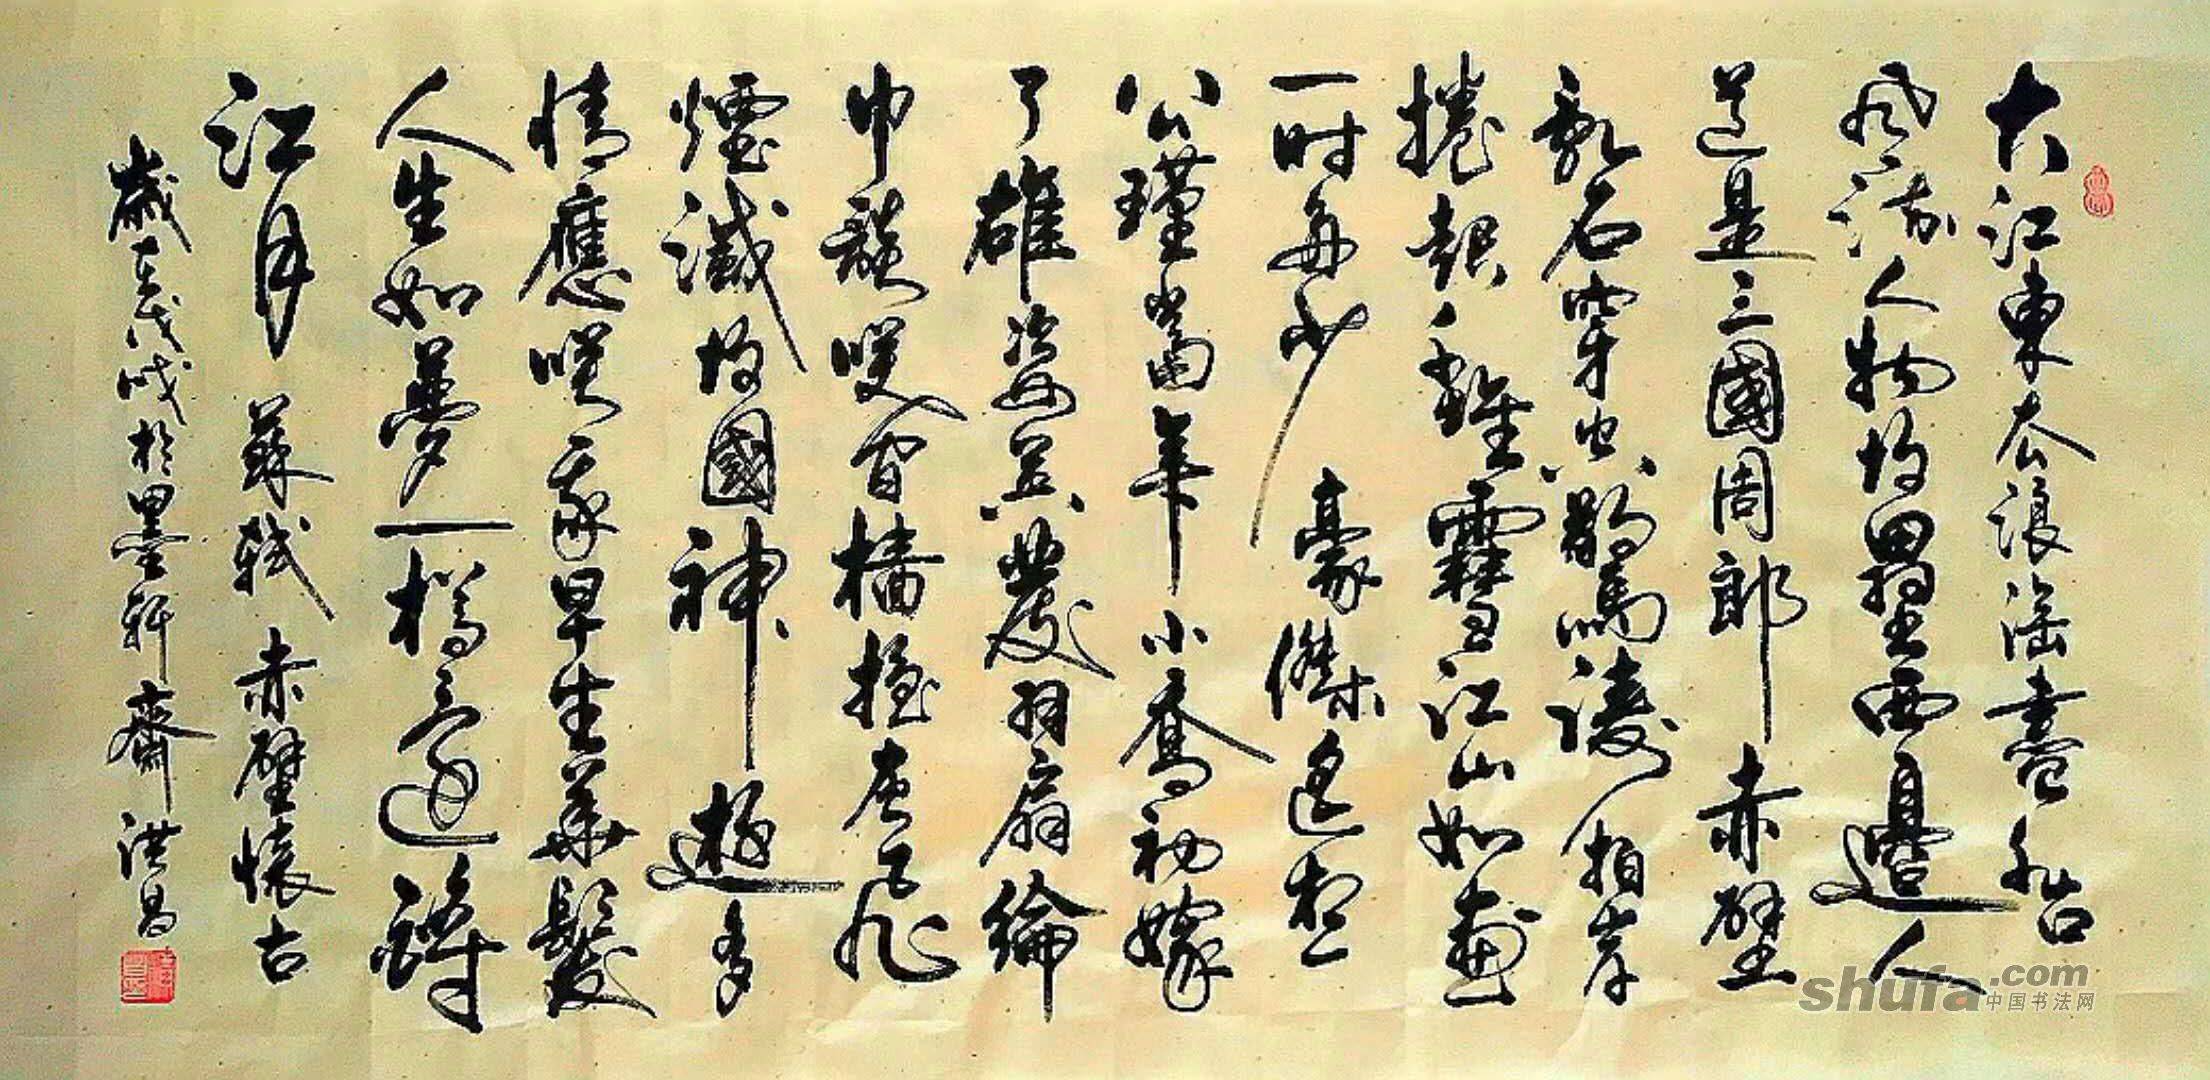 大江東去浪淘盡千古
風流人物故壘西邊人
道是三國周郎赤壁
亂石穿空驚濤拍岸
捲起千堆雪江山如畫
一時多少豪傑遙想
公瑾當年小喬初嫁
了雄姿英發羽扇綸
巾談笑間檣櫓灰飛
煙滅故國神遊多
情應笑我早生華髮
人生如夢一樽還酹
江月 蘇軾 赤壁懷古
歲在戊戌於墨軒齋 洪昌
shufa.com
中国书法网